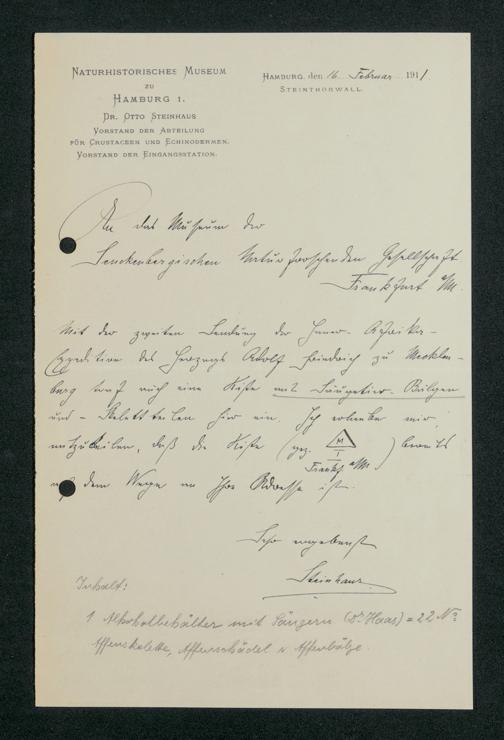 NATURHISTORISCHES MUSEUM
ZU
HAMBURG 1.
DR. OTTO STEINHAUS
VORSTAND DER ABTEILUNG
FÜR CRUSTACEEN UND ECHINODERMEN.
VORSTAND DER EINGANGSSTATION.
HAMBURG, den 16. Februar 1911
STEINTHORWALL.
An das Museum der
Senckenbergischen Naturforschenden Gesellschaft
Frankfurt a/M.
Mit der zweiten Sendung der Inner-Afrika-
Expedition des Herzogs Adolf Friedrich zu Mecklen-
burg traf auch eine Kiste mit Säugetier-Bälgen
und - Skelettteilen hier ein. Ich erlaube mir,
mitzuteilen, daß die Kiste (gez. M I Frankf a/M.) bereits
auf dem Wege an Ihre Adresse ist.
Sehr ergebenst
Steinhaus.
Inhalt:
1 Alkoholbehälter mit Säugern (Dr. Haas) = 22 No
Affenskelette, Affenschädel u Affenbälge.